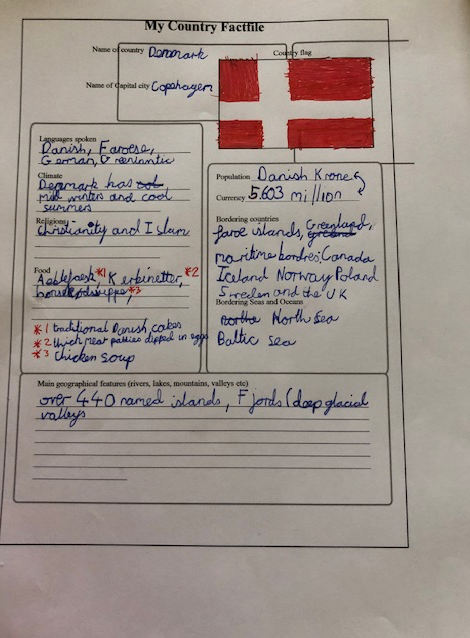 My Country Factfile
Name of country Denmark
Country flag
Name of Capital city Copehagen
Languages spoken
Danish, Faroese,
German, Greenlantic
Climate
Denmark has
mild winters and cool
summers
Religions
Christianity and Islam
Food
*1 *2
*3
*1 traditional Danish cakes
*2 thick meat patties dipped in eggs
*3 Chicken soup
Population Danish Krone
Currency 5.603 million
Bordering countries
faroe islands, Greenland,
maritime bordres: Canada
Iceland Norway Poland
Sweden and the UK
Bordering Seas and Oceans
North Sea
Baltic Sea
Main geographical features (rivers, lakes, mountains, valleys etc)
over 440 named islands, Fjords (deep glacial
valleys